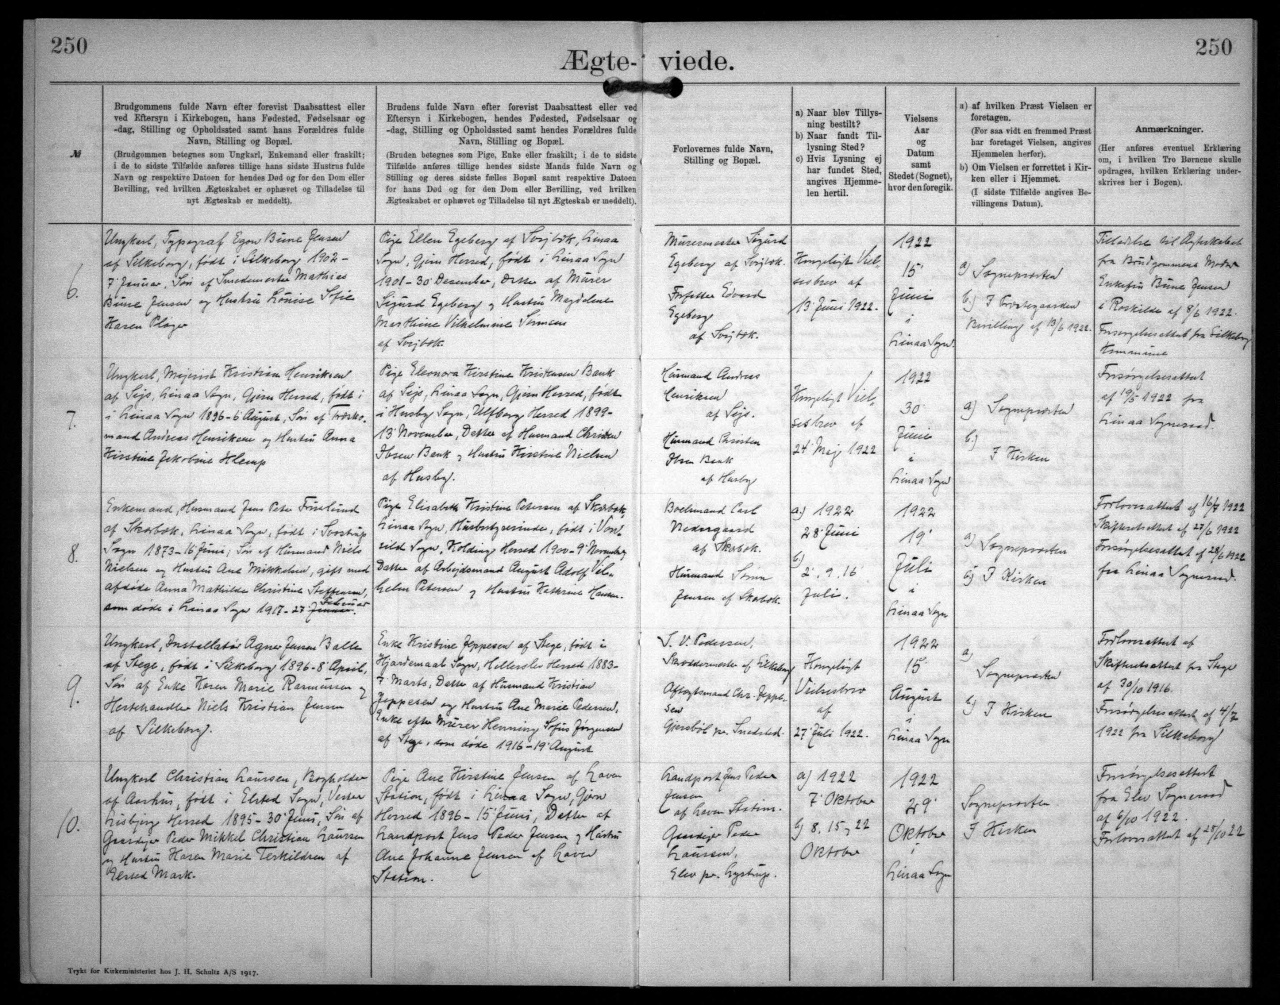 250
250
Ægte- viede.
№
Brudgommens fulde Navn efter forevist Daabsattest eller
ved Eftersyn i Kirkebogen, hans Fødested, Fødselsaar og
-dag, Stilling og Opholdssted samt hans Forældres fulde
Navn, Stilling og Bopæl.
(Brudgommen betegnes som Ungkarl, Enkemand eller fraskilt;
i de to sidste Tilfælde anføres tillige hans sidste Hustrus fulde
Navn og respektive Datoen for hendes Død og for den Dom eller
Bevilling, ved hvilken Ægteskabet er ophævet og Tilladelse til
nyt Ægteskab er meddelt).
Brudens fulde Navn efter forevist Daabsattest eller ved
Eftersyn i Kirkebogen, hendes Fødested, Fødselsaar og
-dag, Stilling og Opholdssted samt hendes Forældres fulde
Navn, Stilling og Bopæl.
(Bruden betegnes som Pige, Enke eller fraskilt; i de to sidste
Tilfælde anføres tillige hendes sidste Mands fulde Navn og
Stilling og deres sidste fælles Bopæl samt respektive Datoen
for hans Død og for den Dom eller Bevilling, ved hvilken
Ægteskabet er ophævet og Tilladelse til nyt Ægteskab er meddelt).
Forlovernes fulde Navn,
Stilling og Bopæl.
a) Naar blev Tillys-
ning bestilt?
b) Naar fandt Til-
lysning Sted?
c) Hvis Lysning ej
har fundet Sted,
angives Hjemme-
len hertil.
Vielsens
Aar
og
Datum
samt
Stedet (Sognet),
hvor den foregik.
a) af hvilken Præst Vielsen er
foretagen.
(For saa vidt en fremmed Præst
har foretaget Vielsen, angives
Hjemmelen herfor).
b) Om Vielsen er forrettet i Kir-
ken eller i Hjemmet.
(I sidste Tilfælde angives Be-
villingens Datum).
Anmærkninger.
(Her anføres eventuel Erklæring
om, i hvilken Tro Børnene skulle
opdrages, hvilken Erklæring under-
skrives her i Bogen).
6.
Ungkarl, Typograf Egon Bune Jensen
af Silkeborg, født i Silkeborg 1902-
7' Januar, Søn af Smedemester Mathias
Bune Jensen og Hustru Louise Sofie
Karen Ploger
Pige Ellen Egeberg af Svejbæk, Linaa
Sogn, Gjern Herred, født i Linaa Sogn
1901-30 December, Datter af Murer
Sigurd Egeberg og Hustru Magdalene
Marthine Vilhelmine
af Svejbæk.
Murermester Sigurd
Egeberg af Svejbæk.
Forfatter Edvard
Egeberg
af Svejbæk.
Kongeligt Viel-
sesbrev af
13' Juni 1922.
1922
15'
Juni
i
Linaa Sogn
a) Sognepræsten
b) I Præstegaarden
Bevilling af 13/6 1922.
Tilladelse til Ægteskabet
fra Brudgommens Moder
Enkefru Bune Jensen
i Roskilde af 8/6 1922.
Forsørgelsesattest fra Silkeborg
Kommune
7.
Ungkarl, Mejerist Kristian Henriksen
af Sejs, Linaa Sogn, Gjern Herred, født i
i Linaa Sogn 1896-6 August, Søn af
mand Andreas Henriksen og Hustru Anna
Kirstine Jakobine Klemp
Pige Eleonora Kirstine Kristensen Bank
af Sejs, Linaa Sogn, Gjern Herred, født
i Husby Sogn, Ulfborg Herred 1899-
13' November, Datter af Husmand Christen
Ibsen Bank og Hustru Kirstine Nielsen
af Husby.
Husmand Andreas
Henriksen
af Sejs.
Husmand Christen
Ibsen Bank
af Husby
Kongeligt Viel-
sesbrev af
24' Maj 1922
1922
30'
Juni
i
Linaa Sogn
a) Sognepræsten
b)
I Kirken
Forsørgelsesattest
af 1922 fra
Linaa Sogneraad.
8.
Enkemand, Husmand Jens Peter
af Skærbæk, Linaa Sogn, født i
Sogn 1873-16' Juni, Søn af Husmand Niels
Nielsen og Hustru Ane Mikkelsen, gift med
afdøde Anna Mathilde Christine Steffensen,
Februar
som døde i Linaa Sogn 1917-27 Januar.
Pige Elisabeth Kristine Petersen af Skærbæk,
Linaa Sogn, Husbestyrerinde, født i Von-
sild Sogn, Kolding Herred 1900-9' November,
Datter af Arbejdsmand August Adolf Vil-
helm Petersen og Hustru Kathrine Hansen.
Boelsmand Carl
Nedergaard
af Skærbæk.
Husmand Søren
Jensen af Skærbæk.
a) 1922
28' Juni
b)
2. 9. 16
Juli.
1922
19'
Juli
i
Linaa Sogn
a) Sognepræsten
b) I Kirken
Forlovrattest af 1922
Skifteretsattest af 27/6 1922
Forsørgelsesattest af 28/6 1922
fra Linaa Sogneraad.
9.
Ungkarl, Installatør Agner Jensen Balle
af Stege, født i Silkeborg 1896-8' April,
Søn af Enke Karen Marie Rasmussen og
Hestehandler Niels Kristian Jensen
af Silkeborg.
Enke Kristine Jeppesen af Stege, født i
Hjardemaal Sogn, Hellerslev Herred 1883-
7' Marts, Datter af Husmand Kristian
Jeppesen og Hustru Ane Marie Pedersen,
Enke efter Murer Henning Sofus Jørgensen
af Stege, som døde 1916-19' August
J. V. Pedersen,
Skræddermester af Silkeborg
Aftægtsmand Chr. Jeppe-
sen
Gjersbøl pr. Snedsted.
Kongeligt
Vielsesbrev
af
27' Juli 1922.
1922
15'
August
i
Linaa Sogn
a)
Sognepræsten
b) I Kirken
Forlovrattest af
Skifteretsattest fra Stege
af 30/10 1916.
Forsørgelsesattest af 4/7
1922 fra Silkeborg
10.
Ungkarl Christian Laursen, Bogholder
af Aarhus, født i Elsted Sogn, Vester
Lisbjerg Herred 1895-30' Juni, Søn af
Gaardejer Peder Mikkel Christian Laursen
og Hustru Karen Marie Terkildsen af
Elsted Mark.
Pige Ane Kirstine Jensen af Laven
Station, født i Linaa Sogn, Gjern
Herred 1896-15' Juni, Datter af
Landpost Jens Peder Jensen og Hustru
Ane Johanne Jensen af Laven
Station.
Landpost Jens Peder
Jensen
af Laven Station.
Gaardejer Peder
Laursen,
Elev pr. Lystrup.
a) 1922
7' Oktober
b) 8. 15 og 22
Oktober
1922
29'
Oktober
i
Linaa Sogn
Sognepræsten
I Kirken
Forsørgelsesattest
fra Elev Sogneraad
af 6/10 1922.
Forlovrattest af 28/10 22
Trykt for Kirkeministeriet hos J. H. Schultz A/S 1917.